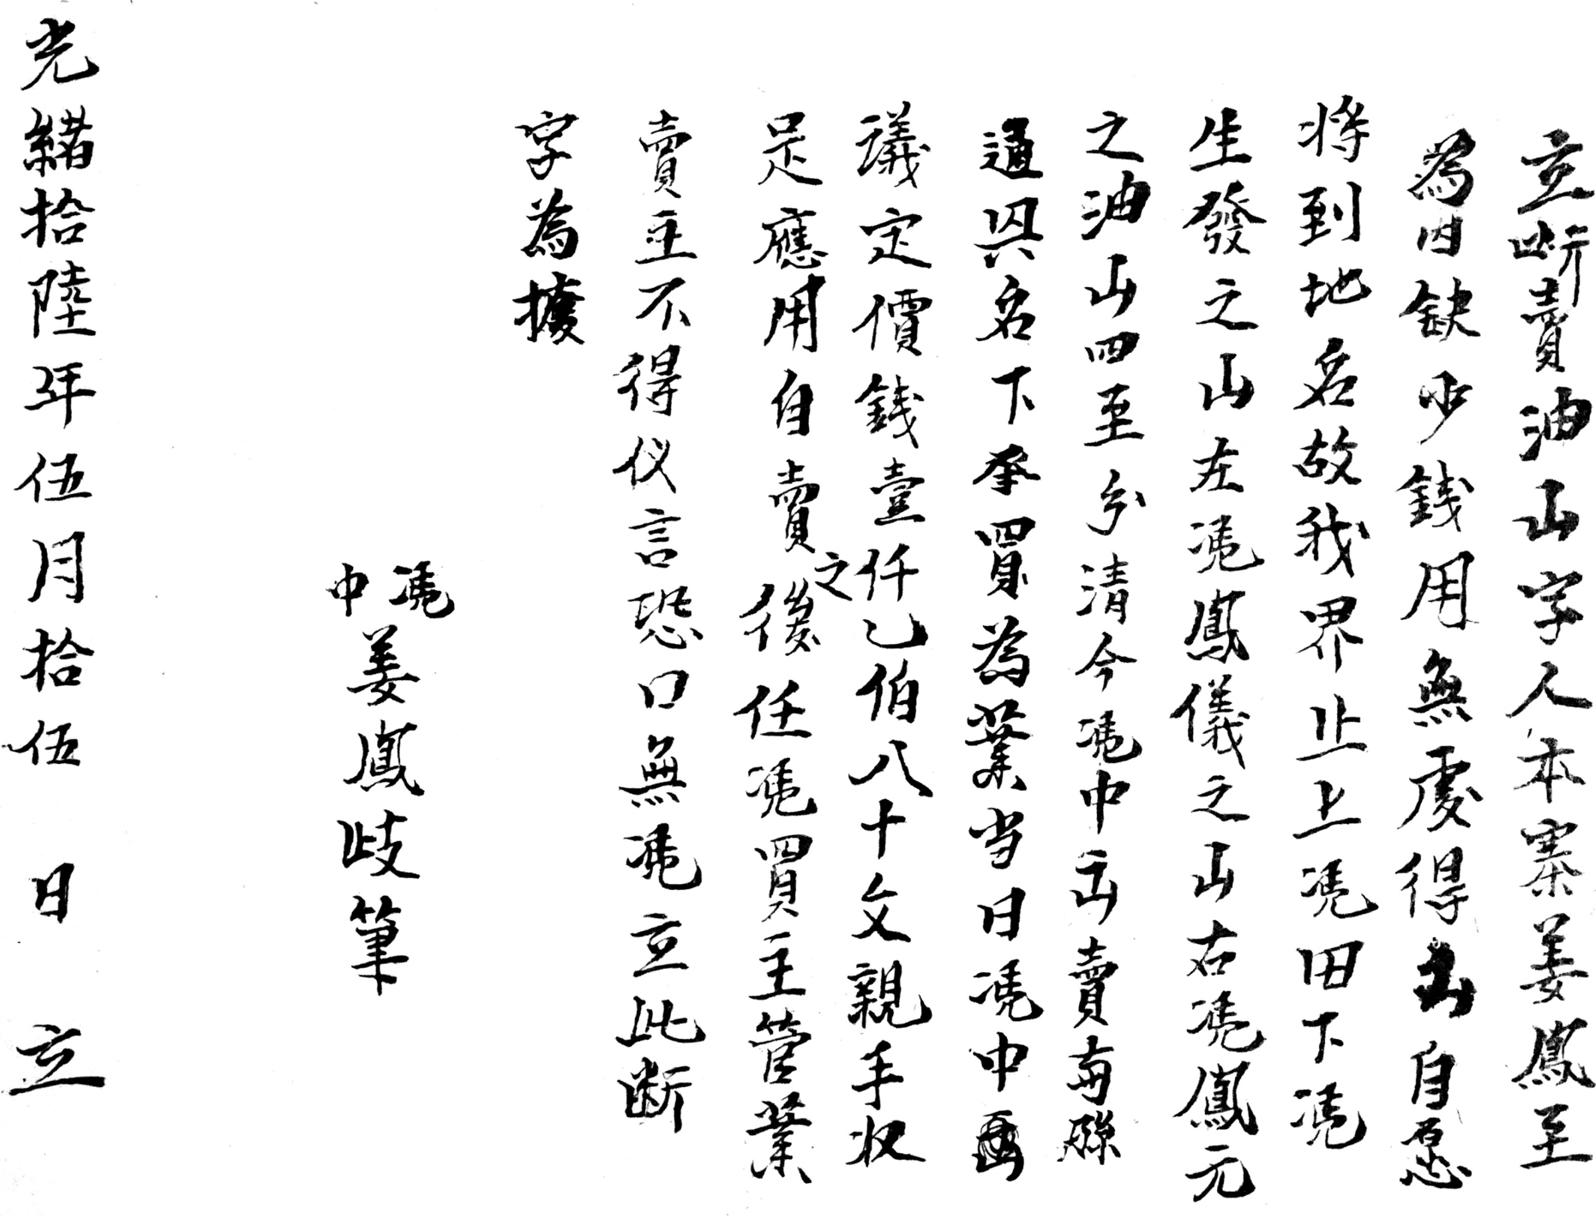 立断賣油山字人本寨姜鳳至
為因缺少錢用無處得出自愿
将到地名故我界止上凴田下凴
生發之山左凴鳳儀之山右凴鳳元
之油山四至分清今凴中出賣與
通與名下承買為業当日凴中
議定價錢壹仟乙伯八十文親手收
足應用自賣之後任凴買主管業
賣主不得仪言恐口無凴立此断
字為據
凴中姜鳳歧筆
光緒拾陸年伍月拾伍日立